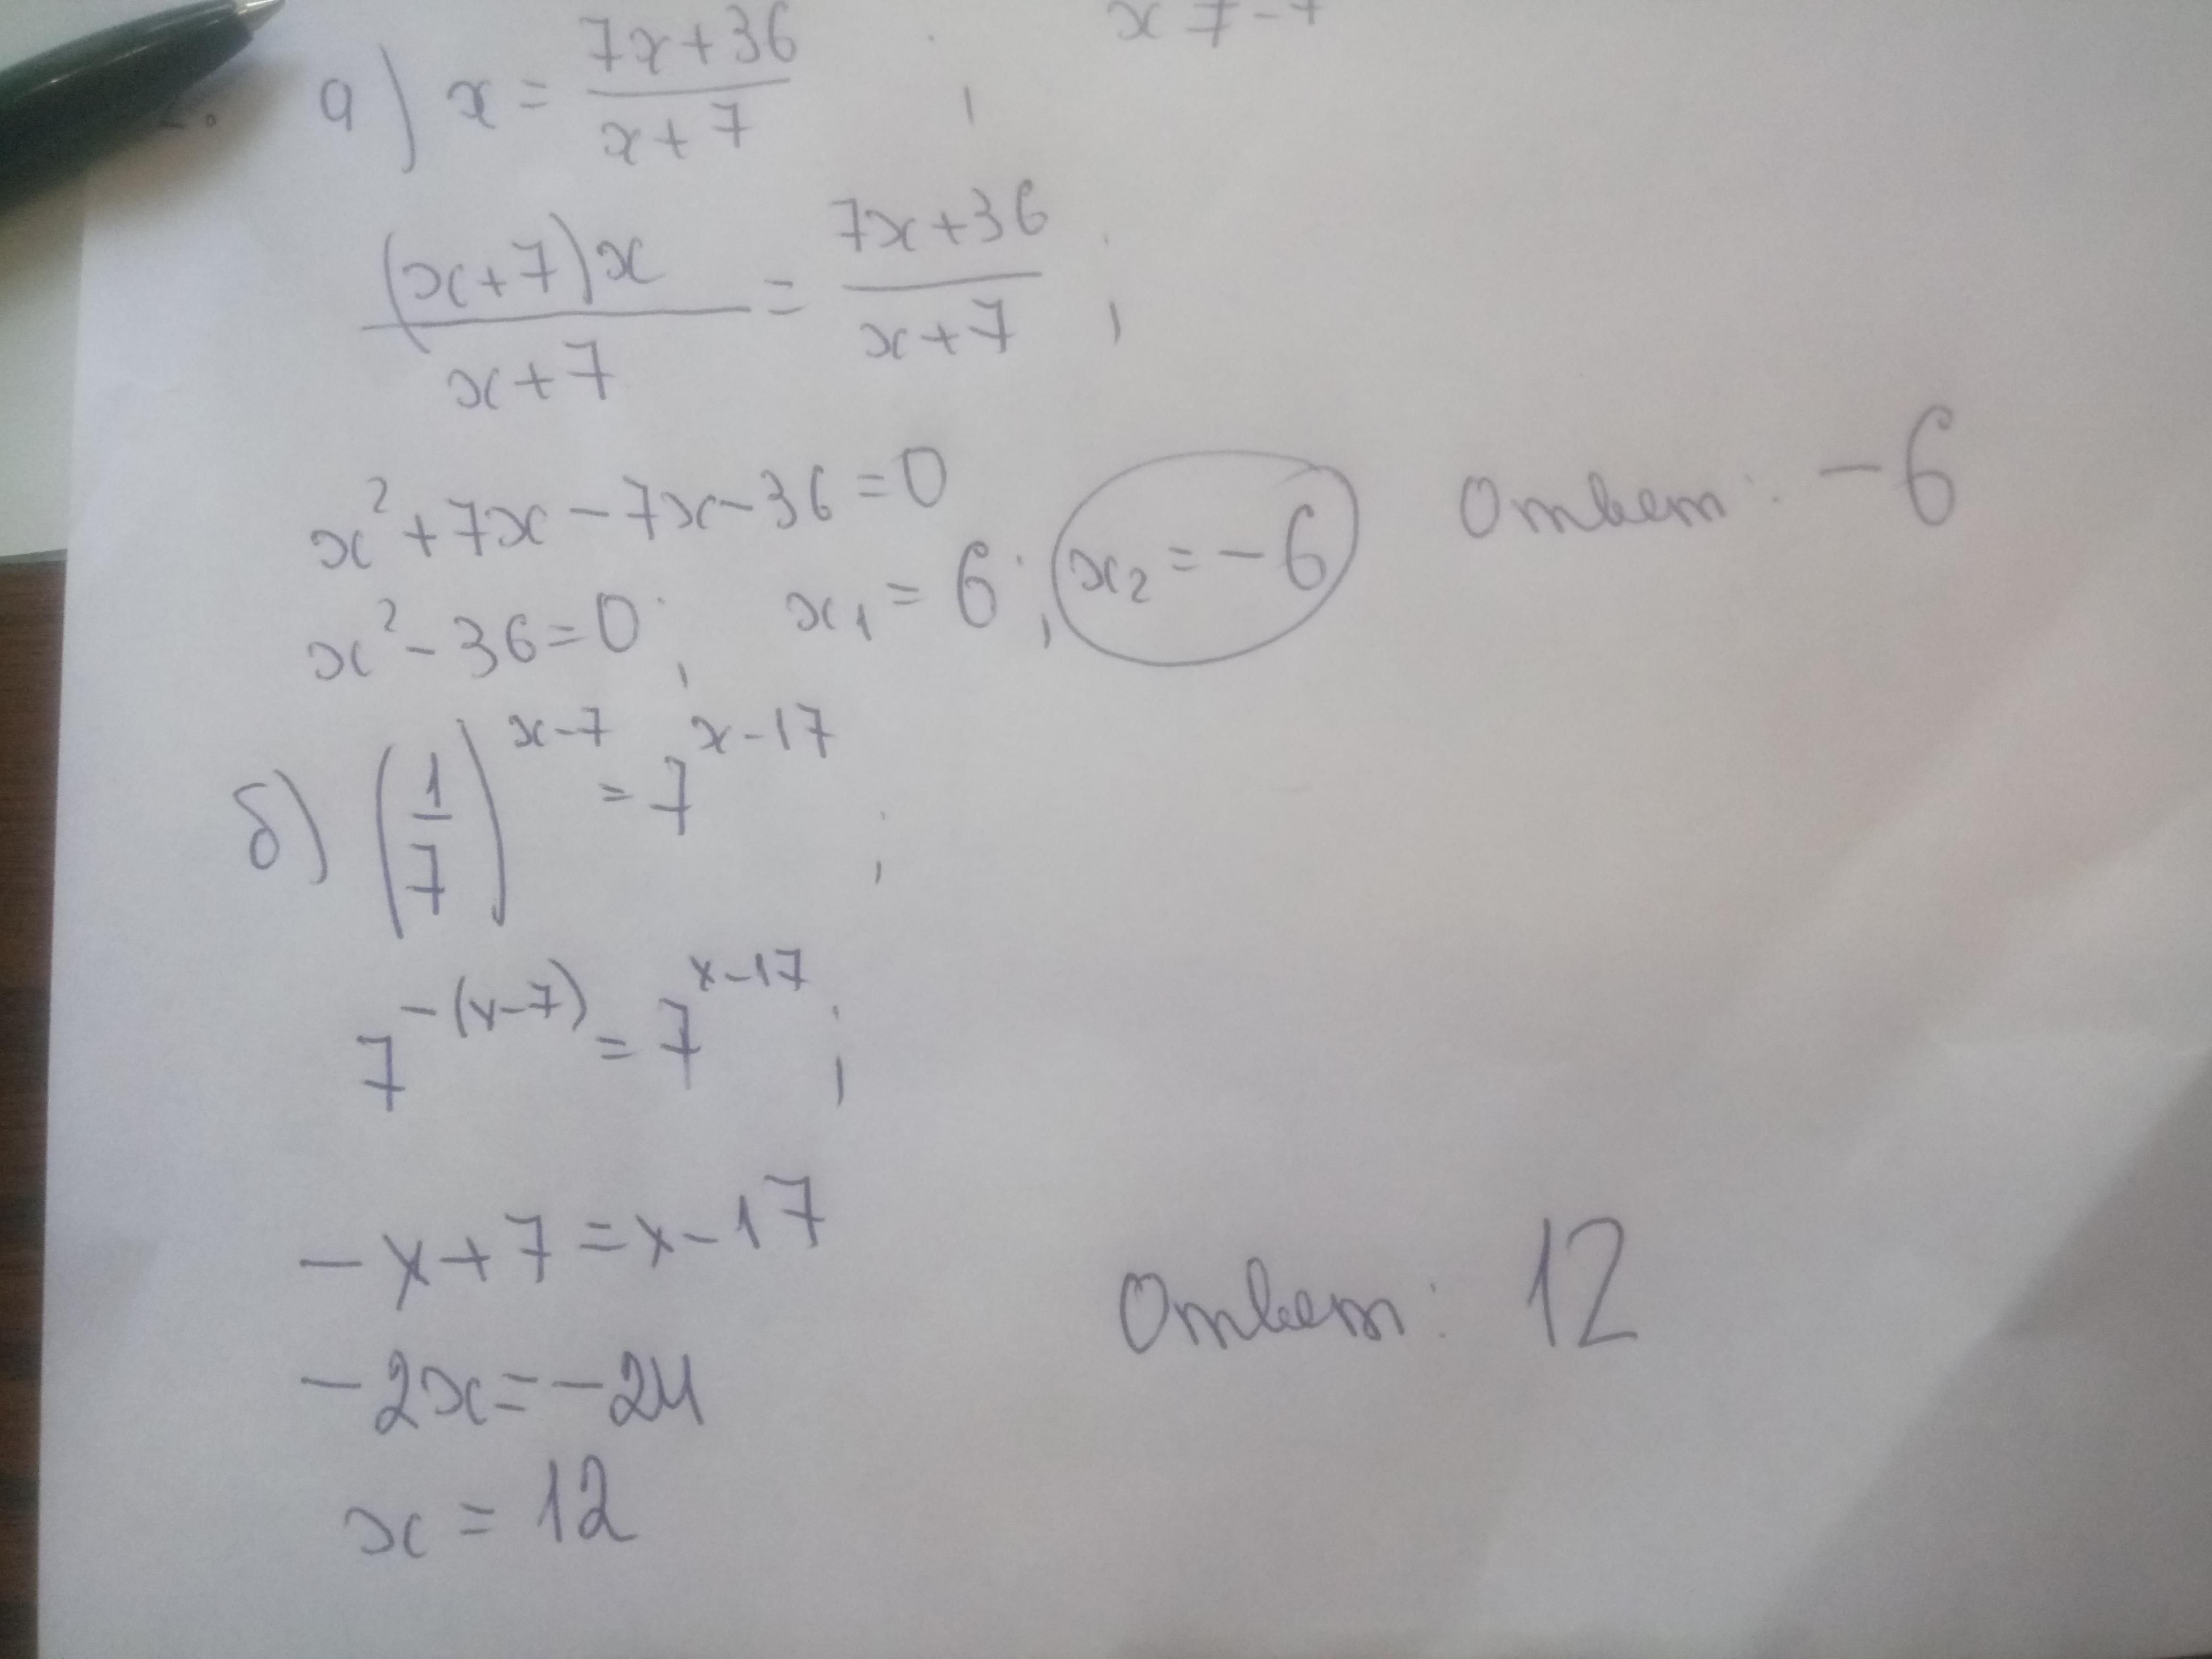 а) x = (7x+36)/(x+7) ;
(x+7)x/(x+7) = (7x+36)/(x+7) ;
x² + 7x − 7x − 36 = 0
x² − 36 = 0 ; x₁ = 6 ; x₂ = −6 Ответ: −6
б) (1/7)^(x−7) = 7^(x−17) ;
7^(−(x−7)) = 7^(x−17) ;
−x + 7 = x − 17
−2x = −24
x = 12
Ответ: 12